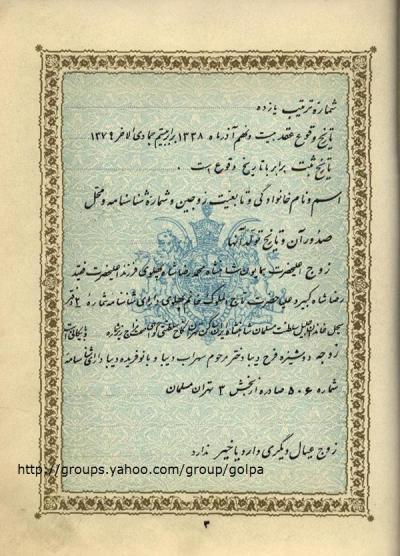 شمارهٔ ترتیب یازده
تاریخ وقوع عقد بیست و نهم آذرماه ۱۳۳۸ برابر بیستم جمادی الاخر ۱۳۷۹
تاریخ ثبت برابر با تاریخ وقوع است .
اسم و نام خانوادگی و تابعیت زوجین و شمارهٔ شناسنامه و محل
صدور آن و تاریخ تولد آنها
زوج اعلیحضرت همایون شاهنشاه محمد رضا شاه پهلوی فرزند اعلیحضرت فقید
رضا شاه کبیر و علیاحضرت تاج الملوک خانم پهلوی دارای شناسنامه شمارهٔ ۲ دفتر
سجل خاندان جلیل سلطنت مسلمان شاهنشاه ایران ساکن تهران
زوجه دوشیزه فرح دیبا دختر مرحوم سهراب دیبا و بانو فریده دیبا دارای شناسنامه
شماره ۵۰۶ صادره از بخش ۳ تهران مسلمان
زوج عیال دیگری دارد یا خیر ندارد
http://groups.yahoo.com/group/golpa
۳